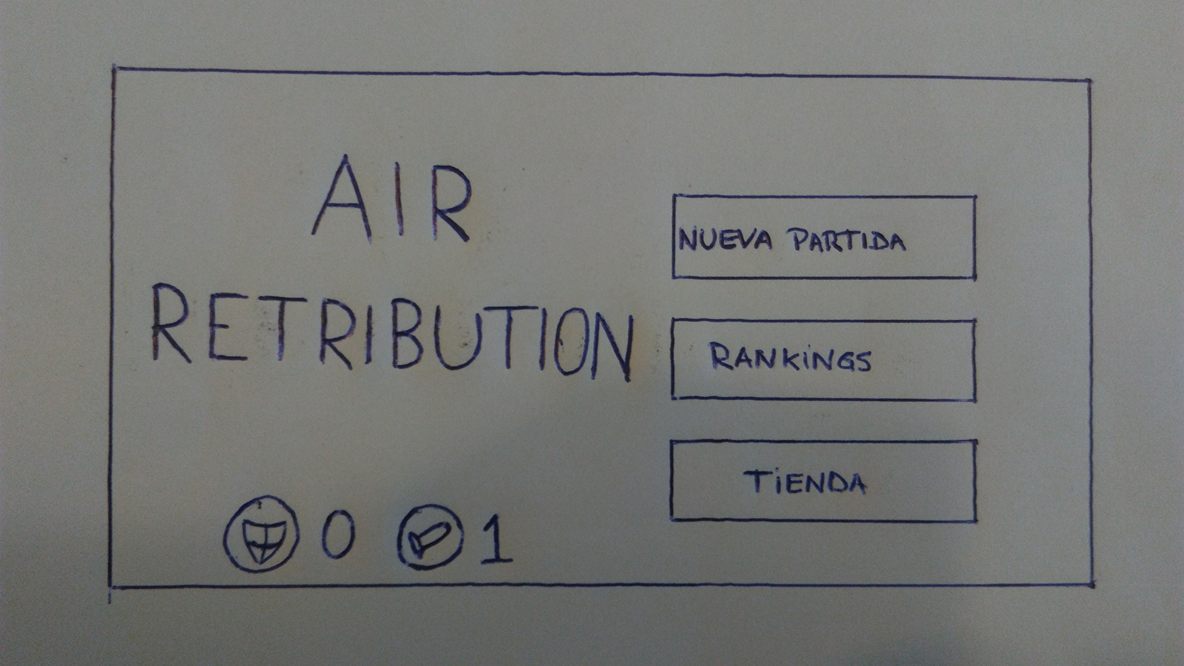 AIR
RETRIBUTION
NUEVA PARTIDA
RANKINGS
TIENDA
0 1